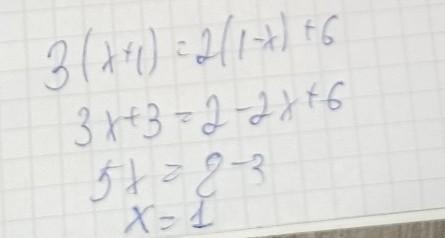 3(x+1)=2(1-x)+6
3x+3=2-2x+6
5x=8-3
x=1